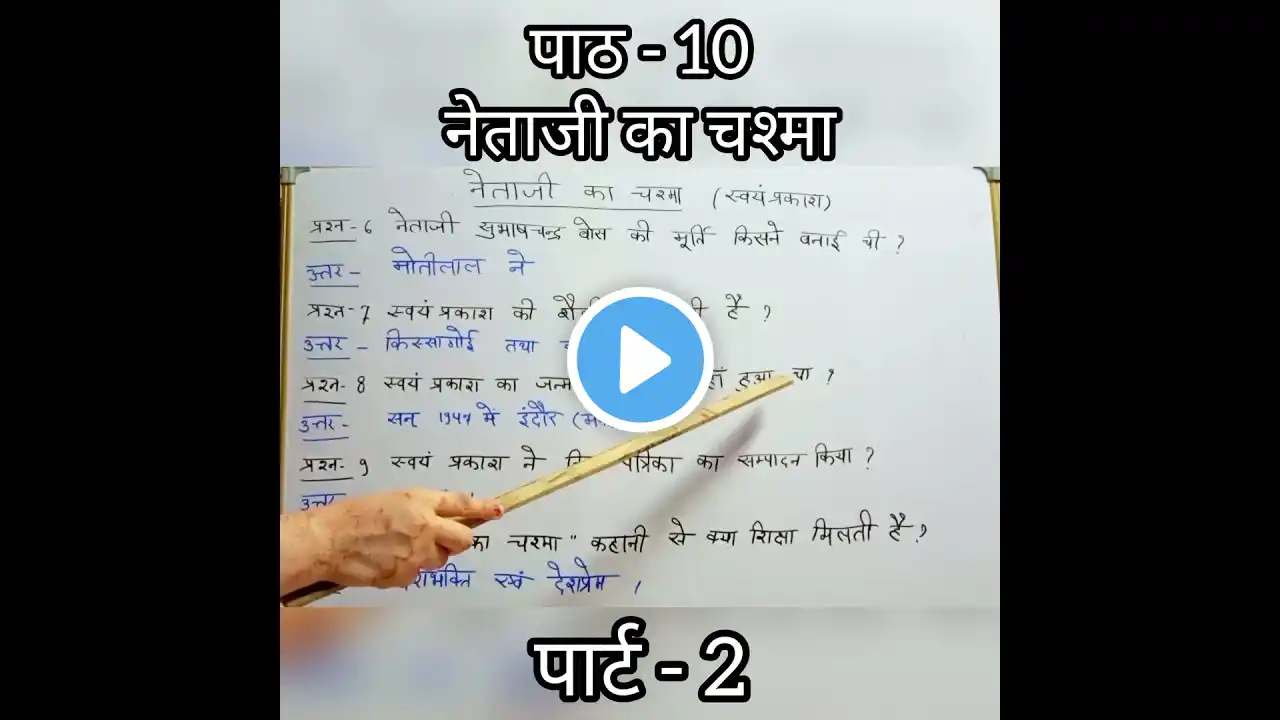 पाठ - 10
नेताजी का चश्मा
नेताजी का चश्मा (स्वयं प्रकाश)
प्रश्न - 6 नेताजी सुभाषचन्द्र बोस की मूर्ति किसने बनाई थी ?
उत्तर - मोतीलाल ने
प्रश्न - 7 स्वयं प्रकाश की है ?
उत्तर - किस्सागोई तथा
प्रश्न - 8 स्वयं प्रकाश का जन्म हुआ था ?
उत्तर - सन् 1947 में इंदौर
प्रश्न - 9 स्वयं प्रकाश ने पत्रिका का सम्पादन किया ?
उत्तर
का चश्मा" कहानी से क्या शिक्षा मिलती है ?
एवं देशप्रेम ।
पार्ट - 2